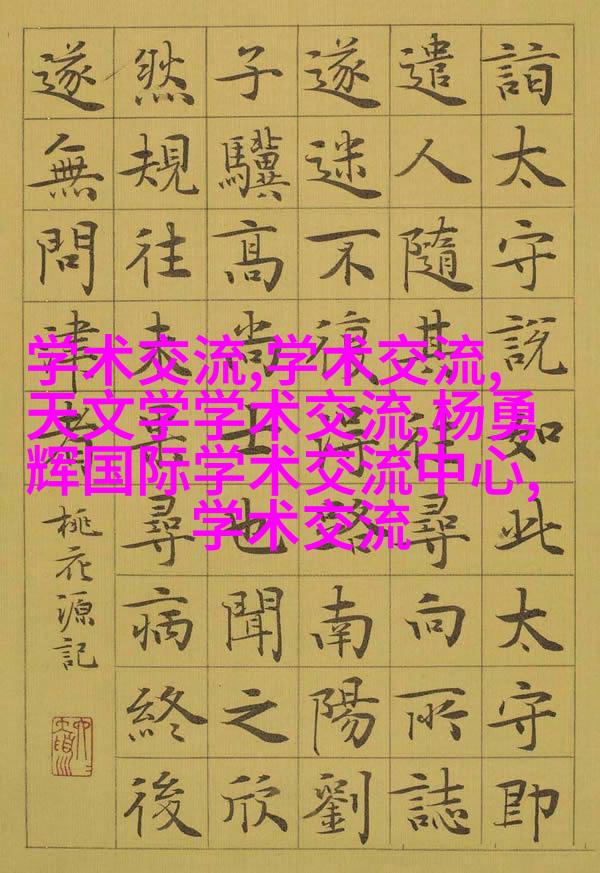 詣太守說如此太守即
遣人隨其往尋向所誌
遂迷不復得路南陽劉
子驥高尚士也聞之欣
然規往未果尋病終後
遂無問津者
桃花源記
学术交流,学术交流,
天文学学术交流,杨勇
辉国际学术交流中心,
学术交流